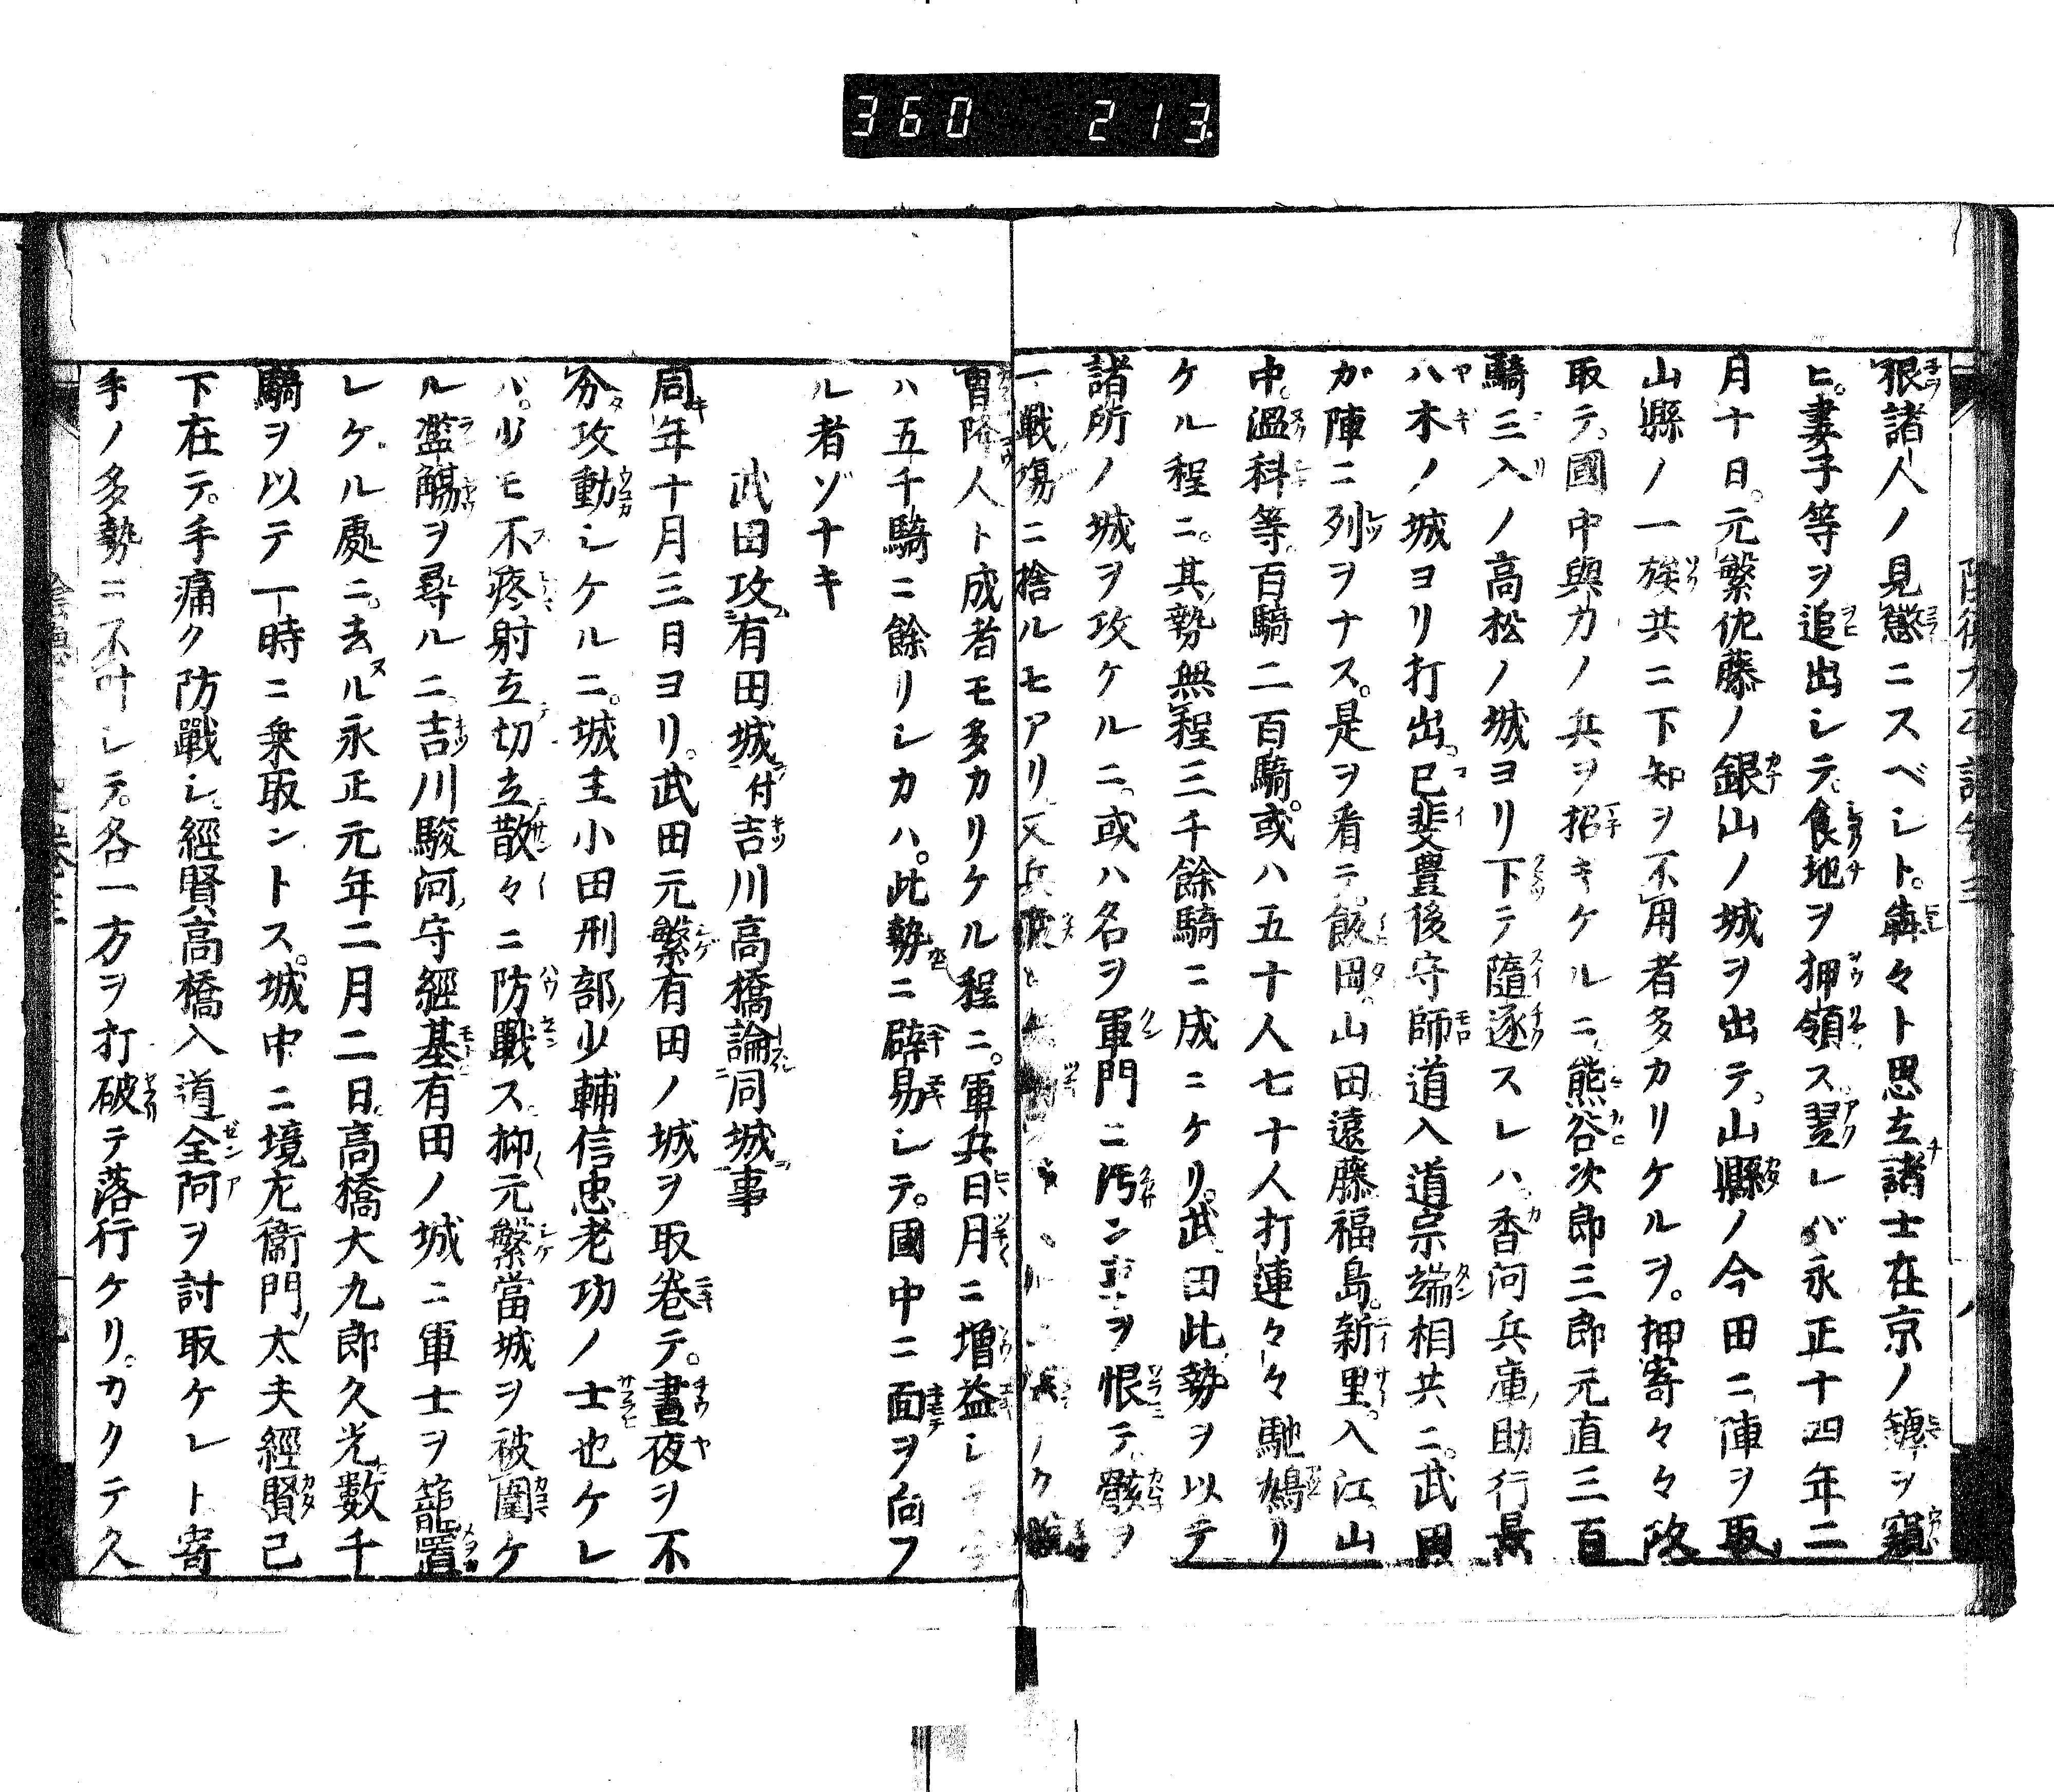 360 213
狼諸人ノ見懲ニスベシト。犇々ト思立諸士在京ノ罅ヲ窺
ヒ。妻子等ヲ追出シテ。食地ヲ押領ス。翌レバ永正十四年二
月十日。元繁伹藤ノ銀山ノ城ヲ出テ。山縣ノ今田ニ陣ヲ取
山縣ノ一族共ニ下知ヲ不用者多カリケルヲ。押寄々々改
取テ。國中與力ノ兵ヲ招キケルニ。熊谷次郎三郎元直三百
騎三入ノ高松ノ城ヨリ下テ隨逐スレハ。香河兵庫助行景
八木ノ城ヨリ打出。已斐豊後守師道入道宗端相共ニ。武田
カ陣ニ列ヲナス。是ヲ看テ。飯田。山田。遠藤。福島。新里。入江。山
中。溫科等。百騎二百騎。或ハ五十人七十人打連々々馳鳩リ
ケル程ニ。其勢無程三千餘騎ニ成ニケリ。武田此勢ヲ以テ
諸所ノ城ヲ攻ケルニ。或ハ名ヲ軍門ニ汚ン事ヲ恨テ。骸ヲ
一戰場ニ捨ルモアリ又兵
冑降人ト成者モ多カリケル程ニ。軍兵日月ニ増益シテ
ハ五千騎ニ餘リシカハ。此勢ニ辟易シテ。國中ニ面ヲ向フ
ル者ゾナキ
武田攻有田城付吉川高橋論同城事
同年十月三日ヨリ。武田元繁有田ノ城ヲ取巻テ。晝夜ヲ不
分攻動シケルニ。城主小田刑部少輔信忠老功ノ士也ケレ
バ。少モ不疼射立切立散々ニ防戰ス。抑元繁當城ヲ被圍ケ
ル濫觴ヲ尋ルニ。吉川駿河守經基有田ノ城ニ軍士ヲ籠置
レケル處ニ。去ル永正元年二月二日。高橋大九郎久光数千
騎ヲ以テ一時ニ乗取ントス。城中ニ境左衞門太夫經賢己
下在テ。手痛ク防戰シ。經賢高橋入道全阿ヲ討取ケレト寄
手ノ多勢ニ不叶シテ。各一方ヲ打破テ落行ケリ。カクテ久